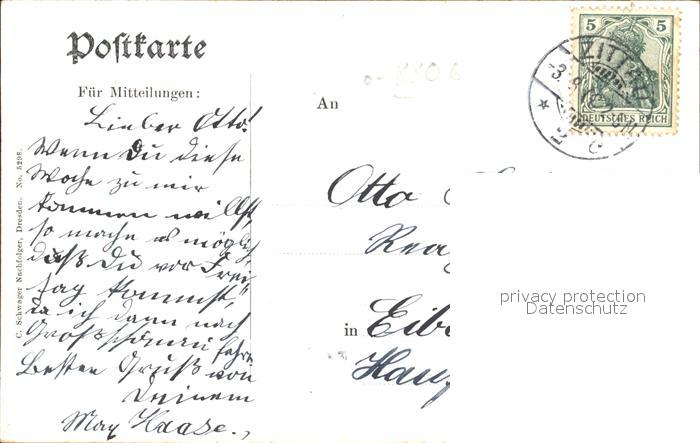 Postkarte
Für Mitteilungen:
An
Lieber Otto!
Wenn Du diese
Woche zu mir
kommen willst,
so mache es möglich,
daß Du vor Frei-
tag kommst,
da ich dann nach
Großschönau fahre.
Besten Gruß von
Deinem
Max Haase.
C. Schwager Nachfolger, Dresden. No. 5298.
8806
5 5
DEUTSCHES REICH
ZITTAU
Otto
Rea
in Eib
Hau
privacy protection
Datenschutz